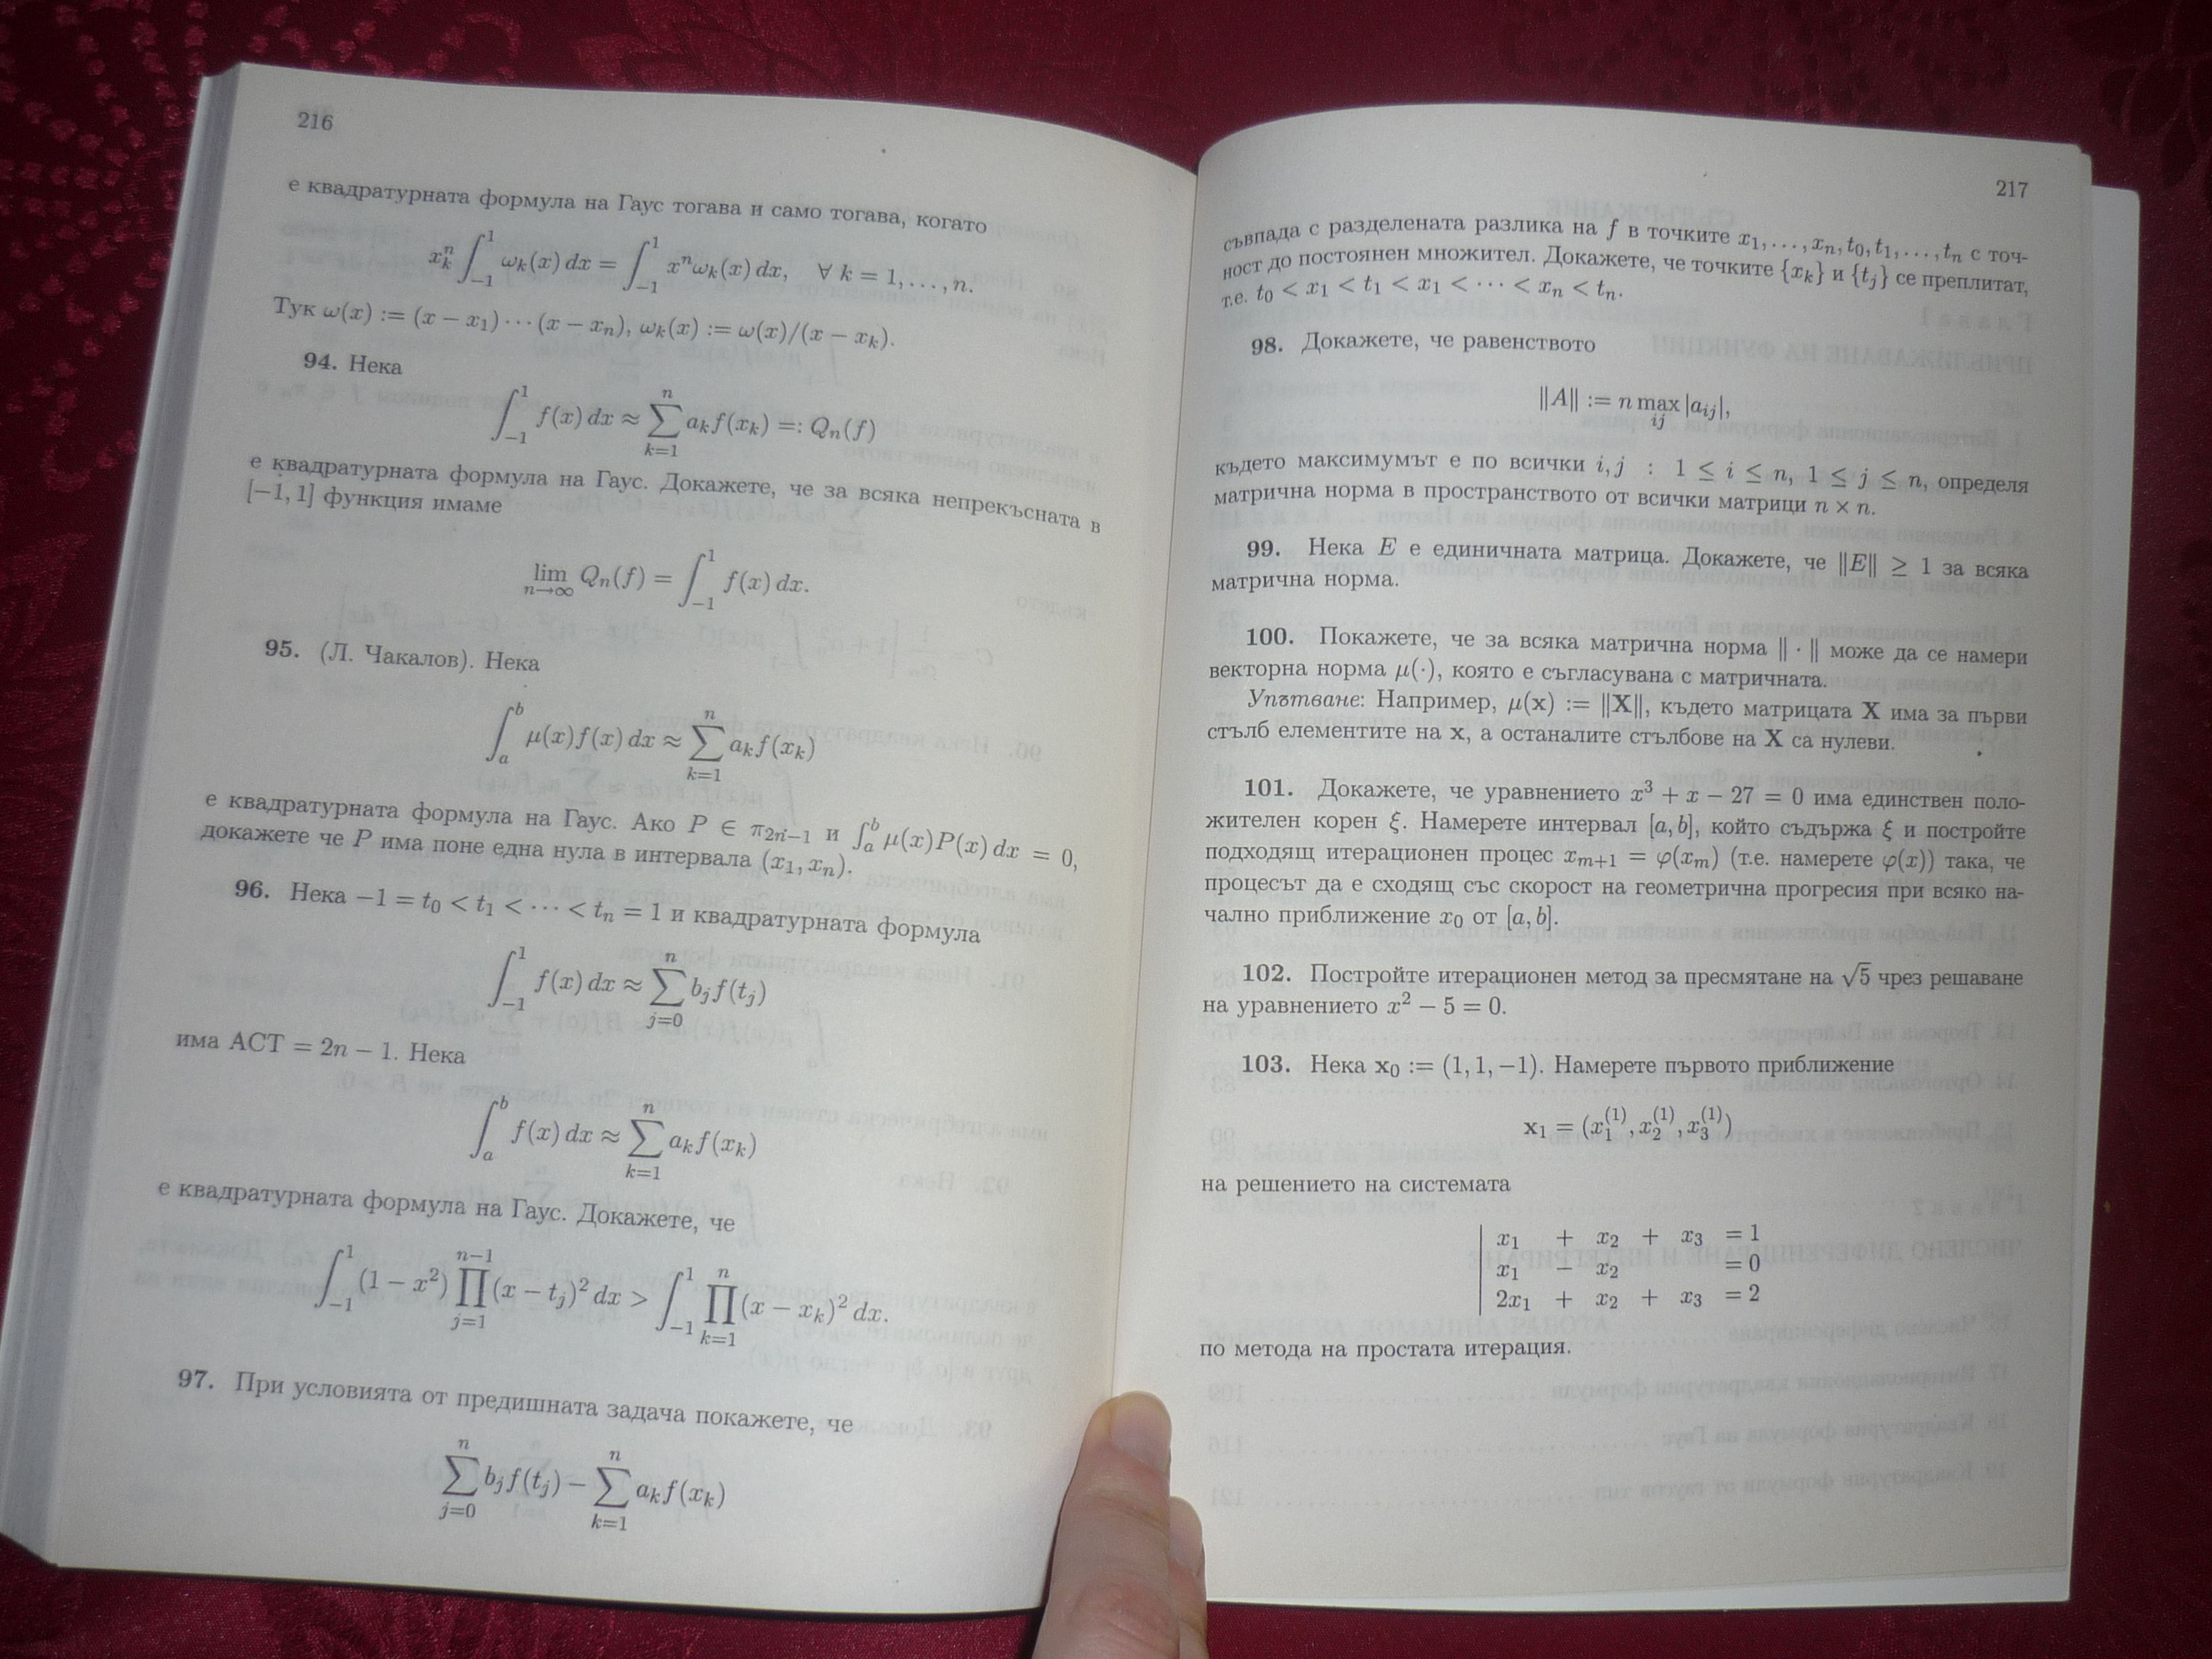 216
е квадратурната формула на Гаус тогава и само тогава, когато
x_k^n ∫_{-1}^{1} ω_k(x) dx = ∫_{-1}^{1} x^n ω_k(x) dx, ∀ k = 1, . . . , n.
Тук ω(x) := (x − x_1) · · · (x − x_n), ω_k(x) := ω(x)/(x − x_k).
94. Нека
∫_{-1}^{1} f(x) dx ≈ ∑_{k=1}^{n} a_k f(x_k) =: Q_n(f)
е квадратурната формула на Гаус. Докажете, че за всяка непрекъсната в
[−1, 1] функция имаме
lim_{n→∞} Q_n(f) = ∫_{-1}^{1} f(x) dx.
95. (Л. Чакалов). Нека
∫_a^b μ(x)f(x) dx ≈ ∑_{k=1}^{n} a_k f(x_k)
е квадратурната формула на Гаус. Ако P ∈ π_{2n−1} и ∫_a^b μ(x)P(x) dx = 0,
докажете че P има поне една нула в интервала (x_1, x_n).
96. Нека −1 = t_0 < t_1 < · · · < t_n = 1 и квадратурната формула
∫_{-1}^{1} f(x) dx ≈ ∑_{j=0}^{n} b_j f(t_j)
има АСТ = 2n − 1. Нека
∫_a^b f(x) dx ≈ ∑_{k=1}^{n} a_k f(x_k)
е квадратурната формула на Гаус. Докажете, че
∫_{-1}^{1} (1 − x^2) ∏_{j=1}^{n−1} (x − t_j)^2 dx > ∫_{-1}^{1} ∏_{k=1}^{n} (x − x_k)^2 dx.
97. При условията от предишната задача покажете, че
∑_{j=0}^{n} b_j f(t_j) − ∑_{k=1}^{n} a_k f(x_k)
217
съвпада с разделената разлика на f в точките x_1, . . . , x_n, t_0, t_1, . . . , t_n с точ-
ност до постоянен множител. Докажете, че точките {x_k} и {t_j} се преплитат,
т.е. t_0 < x_1 < t_1 < x_1 < · · · < x_n < t_n.
98. Докажете, че равенството
‖A‖ := n max_{ij} |a_{ij}|,
където максимумът е по всички i, j : 1 ≤ i ≤ n, 1 ≤ j ≤ n, определя
матрична норма в пространството от всички матрици n × n.
99. Нека E е единичната матрица. Докажете, че ‖E‖ ≥ 1 за всяка
матрична норма.
100. Покажете, че за всяка матрична норма ‖ · ‖ може да се намери
векторна норма μ(·), която е съгласувана с матричната.
Упътване: Например, μ(x) := ‖X‖, където матрицата X има за първи
стълб елементите на x, а останалите стълбове на X са нулеви.
101. Докажете, че уравнението x^3 + x − 27 = 0 има единствен поло-
жителен корен ξ. Намерете интервал [a, b], който съдържа ξ и постройте
подходящ итерационен процес x_{m+1} = φ(x_m) (т.е. намерете φ(x)) така, че
процесът да е сходящ със скорост на геометрична прогресия при всяко на-
чално приближение x_0 от [a, b].
102. Постройте итерационен метод за пресмятане на √5 чрез решаване
на уравнението x^2 − 5 = 0.
103. Нека x_0 := (1, 1, −1). Намерете първото приближение
x_1 = (x_1^{(1)}, x_2^{(1)}, x_3^{(1)})
на решението на системата
x_1 + x_2 + x_3 = 1
x_1 − x_2 = 0
2x_1 + x_2 + x_3 = 2
по метода на простата итерация.